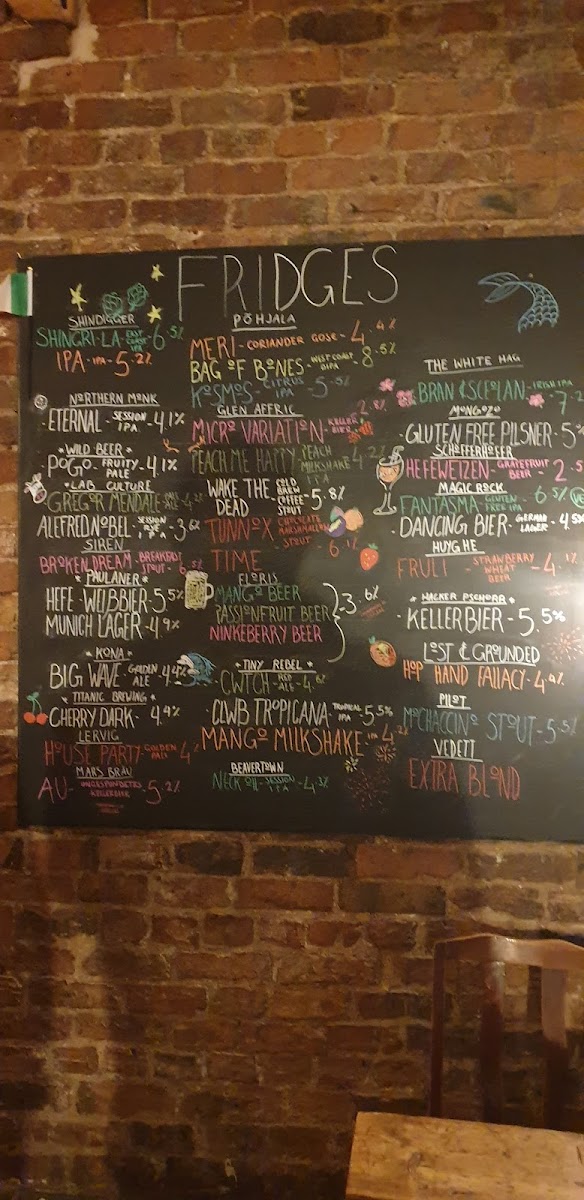 FRIDGES
SHINDIGGER
SHINGRI-LA-EAST COAST IPA 6.5%
IPA-IPA-5.2%
NORTHERN MONK
ETERNAL-SESSION IPA-4.1%
WILD BEER
POGO-FRUITY PALE-4.1%
LAB CULTURE
GREGOR MENDALE-PALE ALE-4.2%
ALEFRED NOBEL-SESSION IPA-3.6%
SIREN
BROKEN DREAM-BREAKFAST STOUT-6.5%
PAULANER
HEFE-WEIBBIER-5.5%
MUNICH LAGER-4.9%
KONA
BIG WAVE-GOLDEN ALE-4.4%
TITANIC BREWING
CHERRY DARK-4.4%
LERVIG
HOUSE PARTY-GOLDEN PALE-4%
MARS BRÄU
AU-UNGESPUNDETES KELLERBIER-5.2%
PÕHJALA
MERI-CORIANDER GOSE-4.4%
BAG OF BONES-WEST COAST DIPA-8.5%
KOSMOS-CITRUS IPA-5.5%
GLEN AFFRIC
MICRO VARIATION-KELLER BIER-2.8%
PEACH ME HAPPY-PEACH MILKSHAKE IPA-4.2%
WAKE THE DEAD-COLD BREW COFFEE STOUT-5.8%
TUNNOX TIME-CHOCOLATE MARSHMALLOW STOUT-6.1%
FLORIS
MANGO BEER
PASSIONFRUIT BEER
NINKEBERRY BEER
3.6%
TINY REBEL
CWTCH-RED ALE-4.6%
CLWB TROPICANA-TROPICAL IPA-5.5%
MANGO MILKSHAKE-IPA-4
BEAVERTOWN
NECK OIL-SESSION IPA-4.3%
THE WHITE HAG
BRAN & SCEOLAN-IRISH IPA-7.2
MONGOZO
GLUTEN FREE PILSNER-5%
SCHÖFFERHOFER
HEFEWEIZEN-GRAPEFRUIT BEER-2.5
MAGIC ROCK
FANTASMA-GLUTEN FREE IPA-6.5%
DANCING BIER-GERMAN LAGER-4.5%
HUYGHE
FRULI-STRAWBERRY WHEAT BEER-4.1%
HACKER PSCHORR
KELLERBIER-5.5%
LOST & GROUNDED
HOP HAND FALLACY-4.4%
PILOT
MOCHACCINO STOUT-5.5%
VEDETT
EXTRA BLOND